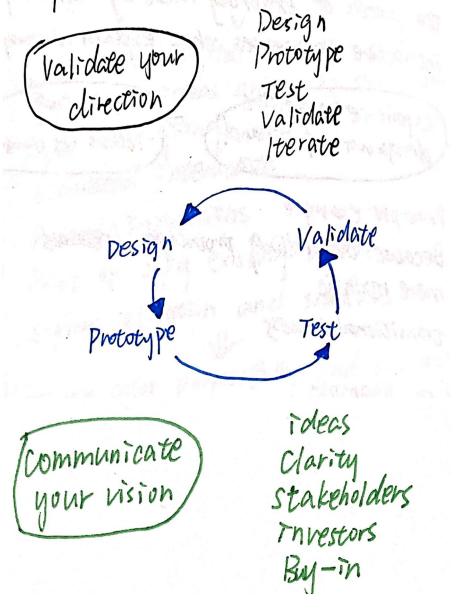 Validate your
direction
Design
Prototype
Test
Validate
Iterate
Design
Validate
Prototype
Test
Communicate
your vision
ideas
Clarity
Stakeholders
Investors
Buy-in